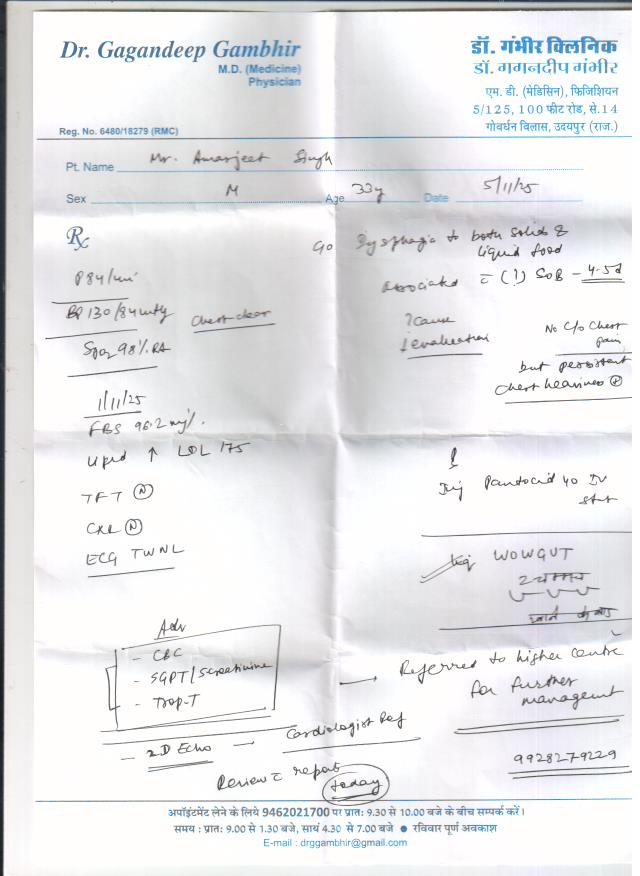 Dr. Gagandeep Gambhir
M.D. (Medicine)
Physician
Reg. No. 6480/18279 (RMC)
डॉ. गंभीर क्लिनिक
डॉ. गगनदीप गंभीर
एम. डी. (मेडिसिन), फिजिशियन
5/125, 100 फीट रोड, से.14
गोवर्धन विलास, उदयपुर (राज.)
Pt. Name Mr. Amarjeet Singh
Sex M Age 33y Date 5/11/25
Rx
P 84/min
BP 130/84 mmHg
Chest clear
SpO2 98% RA
1/11/25
FBS 96.2 mg%
Lipid ↑ LDL 175
TFT (N)
CXR (N)
ECG TWNL
Adv
- CBC
- SGPT/S creatinine
- Trop-T
- 2D Echo → Cardiologist Ref
Review c̄ report
today
C/o Dysphagia to both solids &
liquid food
associated c̄ (!) SOB - 4-5d
?cause
↓ evaluation
No C/o Chest
pain
but persistent
chest heaviness ⊕
Inj Pantocid 40 IV
stat
WOWGUT
2 चम्मच
→ Referred to higher centre
for further
management
9928279229
अपॉइंटमेंट लेने के लिये 9462021700 पर प्रातः 9.30 से 10.00 बजे के बीच सम्पर्क करें।
समय : प्रातः 9.00 से 1.30 बजे, सायं 4.30 से 7.00 बजे ● रविवार पूर्ण अवकाश
E-mail : drggambhir@gmail.com